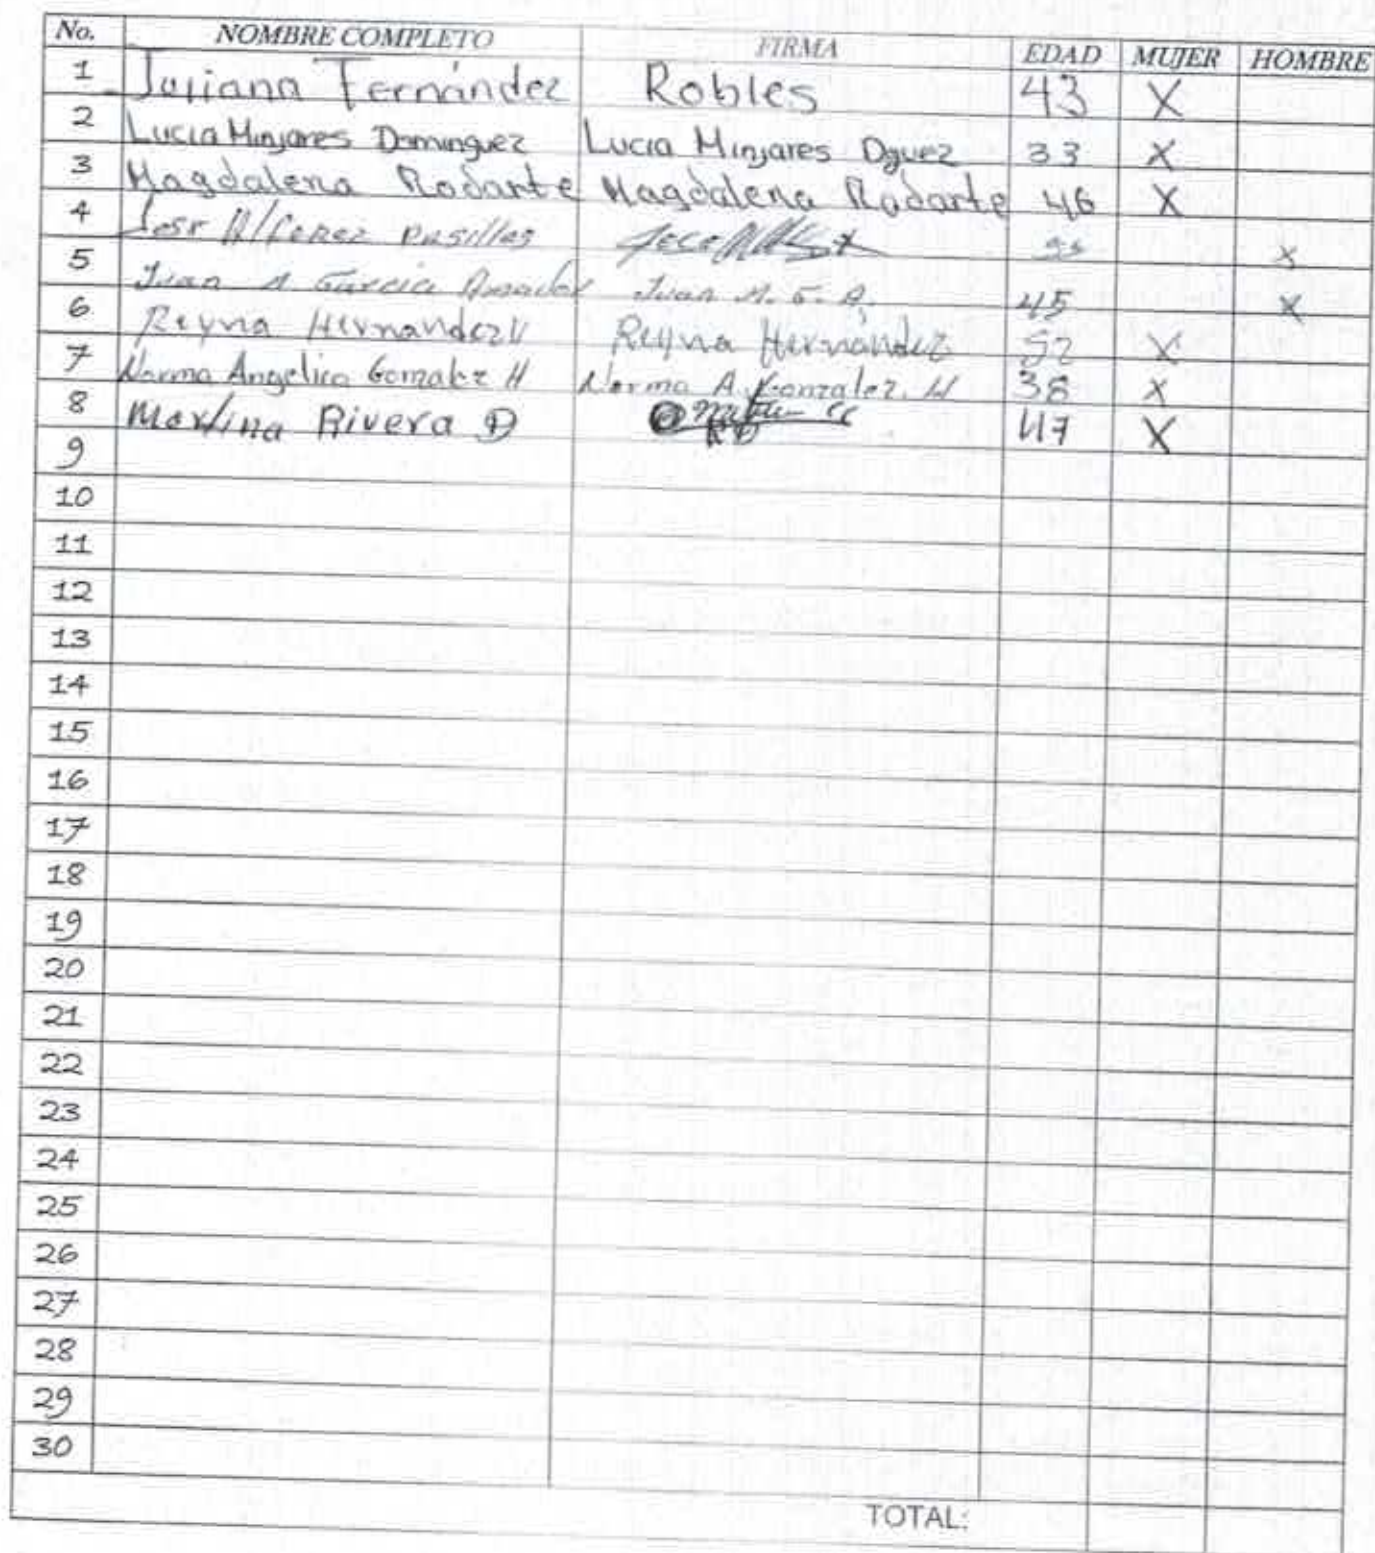 No. NOMBRE COMPLETO FIRMA EDAD MUJER HOMBRE
1 Juliana Fernández Robles 43 X
2 Lucia Minjares Dominguez Lucia Minjares Dguez 33 X
3 Magdalena Rodarte Magdalena Rodarte 46 X
4 X
5 Juan M Garcia Amador Juan M. G. A. 45 X
6 Reyna Hernandez Reyna Hernández 52 X
7 Norma Angelica Gonzalez H Norma A. Gonzalez. H 38 X
8 Martina Rivera D 47 X
9
10
11
12
13
14
15
16
17
18
19
20
21
22
23
24
25
26
27
28
29
30
TOTAL: